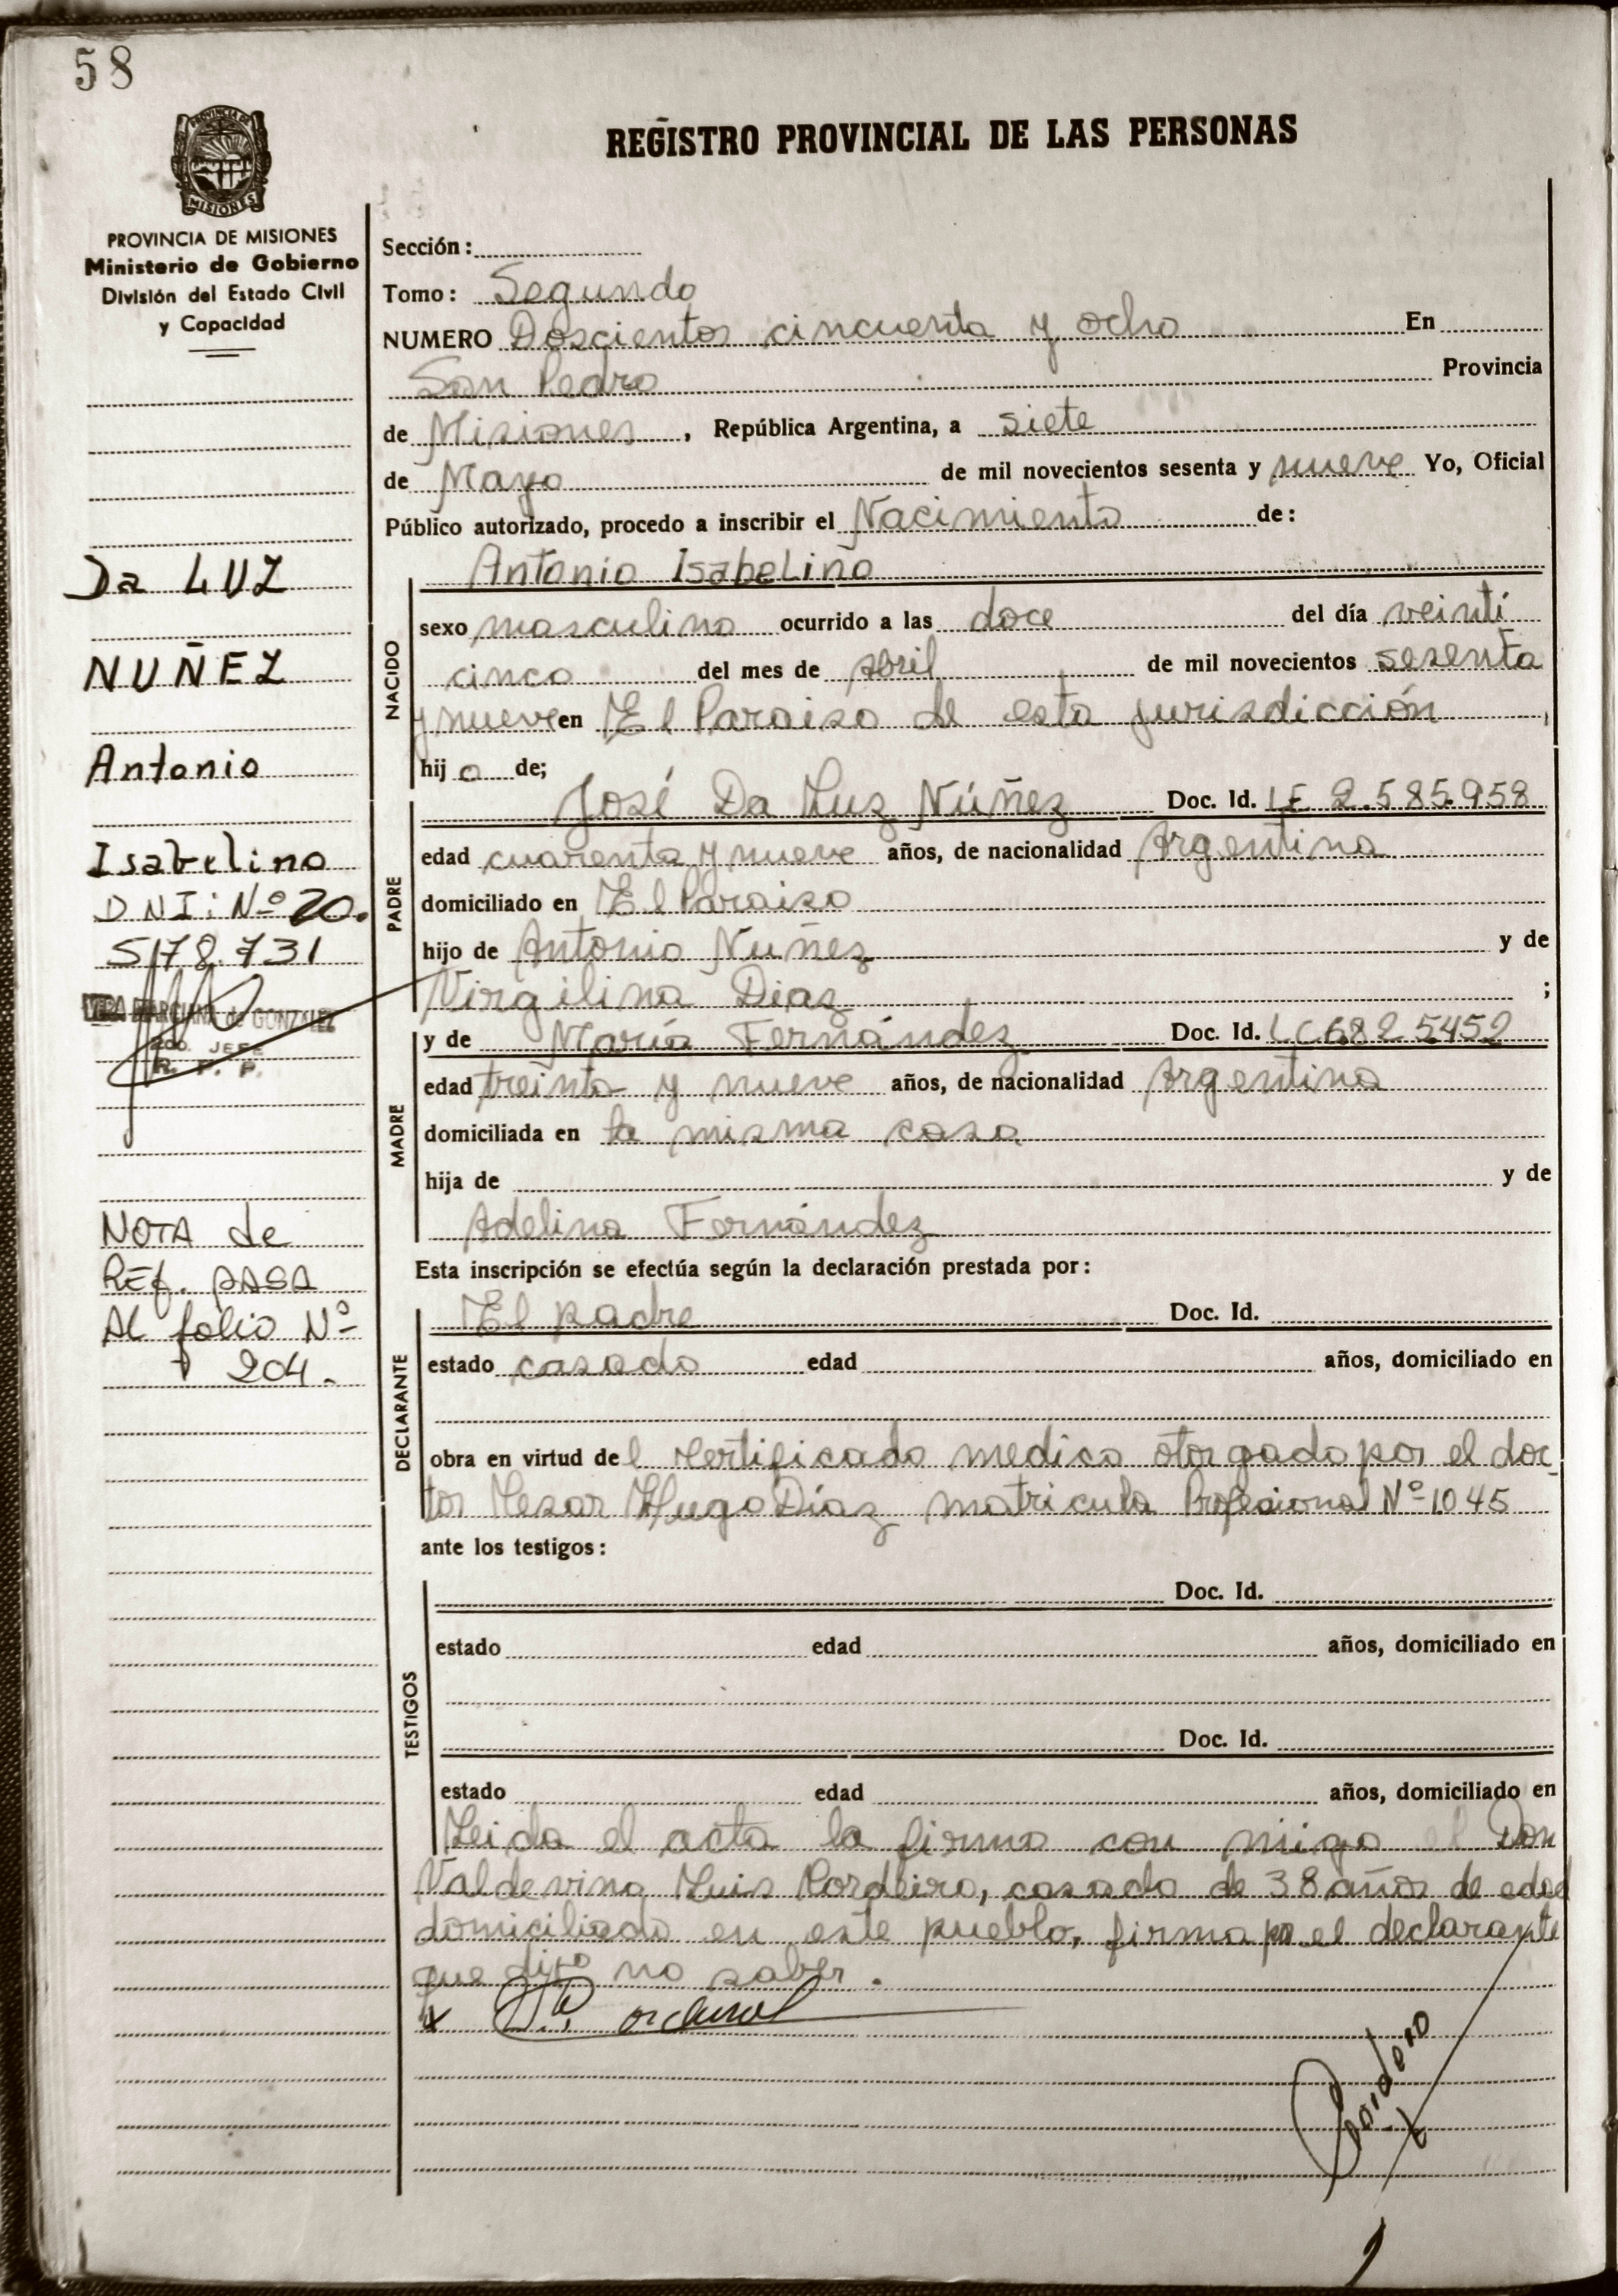 58
PROVINCIA DE
MISIONES
REGISTRO PROVINCIAL DE LAS PERSONAS
PROVINCIA DE MISIONES
Ministerio de Gobierno
División del Estado Civil
y Capacidad
Da LUZ
NUÑEZ
Antonio
Isabelino
DNI: Nº 20.
578.731
VERA MARCIANA de GONZALEZ
2do. JEFE
R. P. P.
NOTA de
REf. PASA
Al folio Nº
204.
Sección:
Tomo: Segundo
NUMERO Doscientos cincuenta y ocho En
San Pedro Provincia
de Misiones, República Argentina, a siete
de Mayo de mil novecientos sesenta y nueve Yo, Oficial
Público autorizado, procedo a inscribir el Nacimiento de:
Antonio Isabelino
NACIDO
sexo masculino ocurrido a las doce del día veinti
cinco del mes de Abril de mil novecientos sesenta
y nueve en El Paraiso de esta jurisdicción,
hijo de;
PADRE
José Da Luz Núñez Doc. Id. LE 2.585.958
edad cuarenta y nueve años, de nacionalidad Argentina
domiciliado en El Paraiso
hijo de Antonio Nuñez y de
Virgilina Dias ;
MADRE
y de María Fernández Doc. Id. LC 6825452
edad treinta y nueve años, de nacionalidad Argentina
domiciliada en la misma casa
hija de y de
Adelina Fernández
Esta inscripción se efectúa según la declaración prestada por:
DECLARANTE
El padre Doc. Id.
estado casado edad años, domiciliado en
obra en virtud del certificado medico otorgado por el doc
tor Cesar Hugo Díaz matricula Profesional Nº 1045
ante los testigos:
TESTIGOS
Doc. Id.
estado edad años, domiciliado en
Doc. Id.
estado edad años, domiciliado en
Leida el acta la firma con migo el Don
Valdevino Luis Cordeiro, casado de 38 años de edad
domiciliado en este pueblo, firma por el declarante
que dijo no saber.